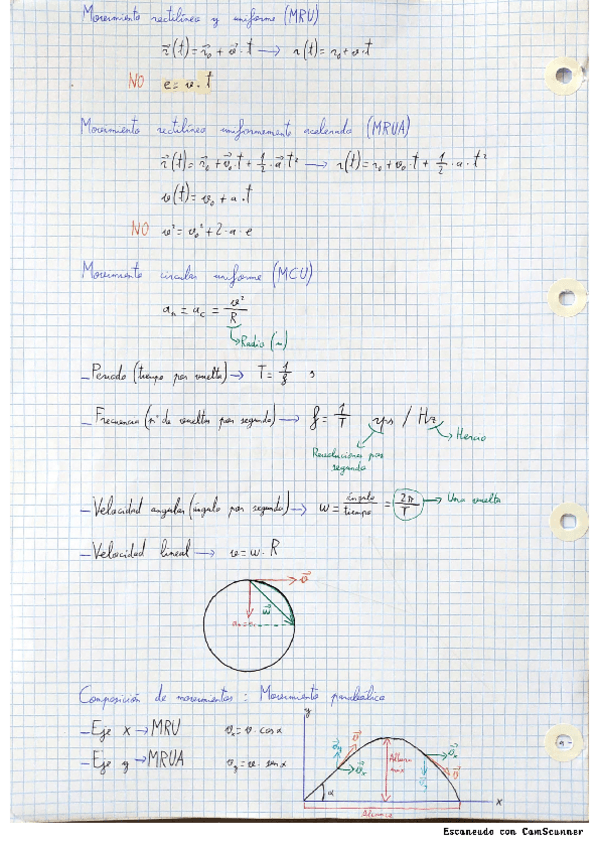 Movimiento rectilíneo y uniforme (MRU)
r⃗(t) = r⃗₀ + v⃗ · t → r(t) = r₀ + v · t
NO e = v · t
Movimiento rectilíneo uniformemente acelerado (MRUA)
r⃗(t) = r⃗₀ + v⃗₀ · t + 1/2 · a⃗ · t² → r(t) = r₀ + v₀ · t + 1/2 · a · t²
v(t) = v₀ + a · t
NO v² = v₀² + 2 · a · e
Movimiento circular uniforme (MCU)
aₙ = a_c = v²/R
Radio (m)
- Periodo (tiempo por vuelta) → T = 1/f s
- Frecuencia (nº de vueltas por segundo) → f = 1/T rps / Hz
Hercio
Revoluciones por
segundo
- Velocidad angular (ángulo por segundo) → ω = ángulo/tiempo = 2π/T → Una vuelta
- Velocidad lineal → v = ω · R
v⃗
w⃗
Composición de movimientos: Movimiento parabólico
- Eje x → MRU vₓ = v · cos α
- Eje y → MRUA v_y = v · sin α
y
v⃗_y v⃗
v⃗ₓ
Altura
max
v⃗ₓ
v⃗
v⃗_y
α
x
Alcance
Escaneado con CamScanner